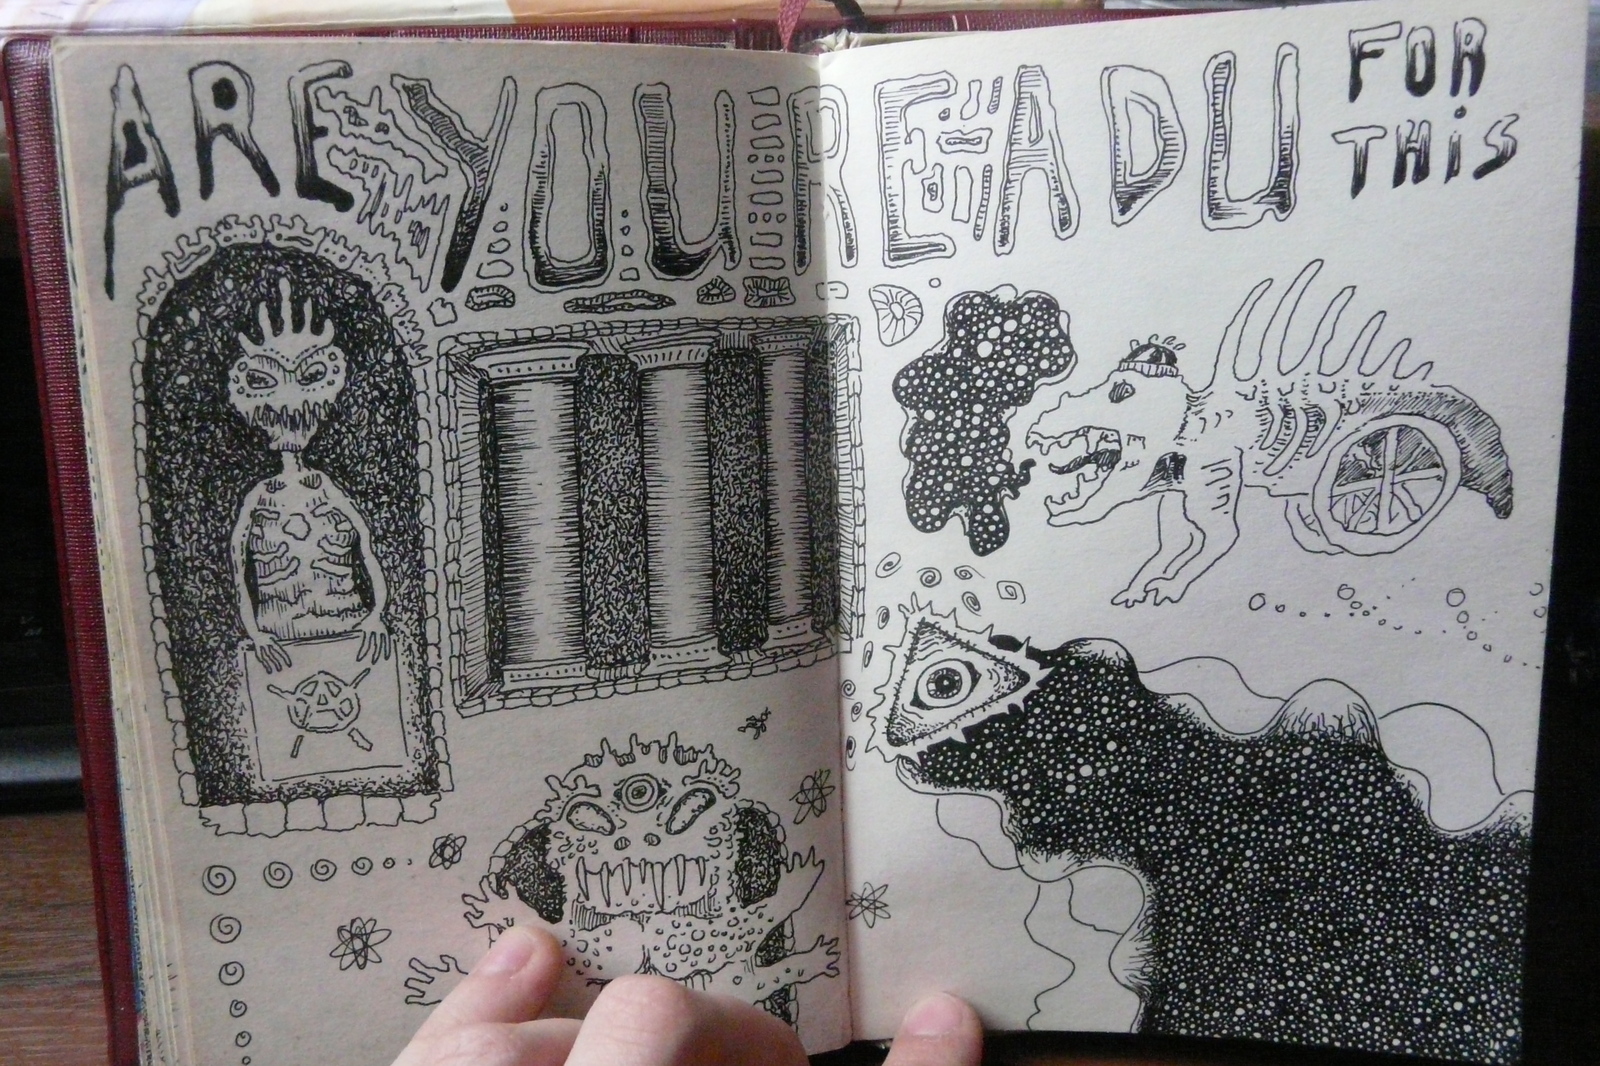 ARE YOU READU
FOR
THiS